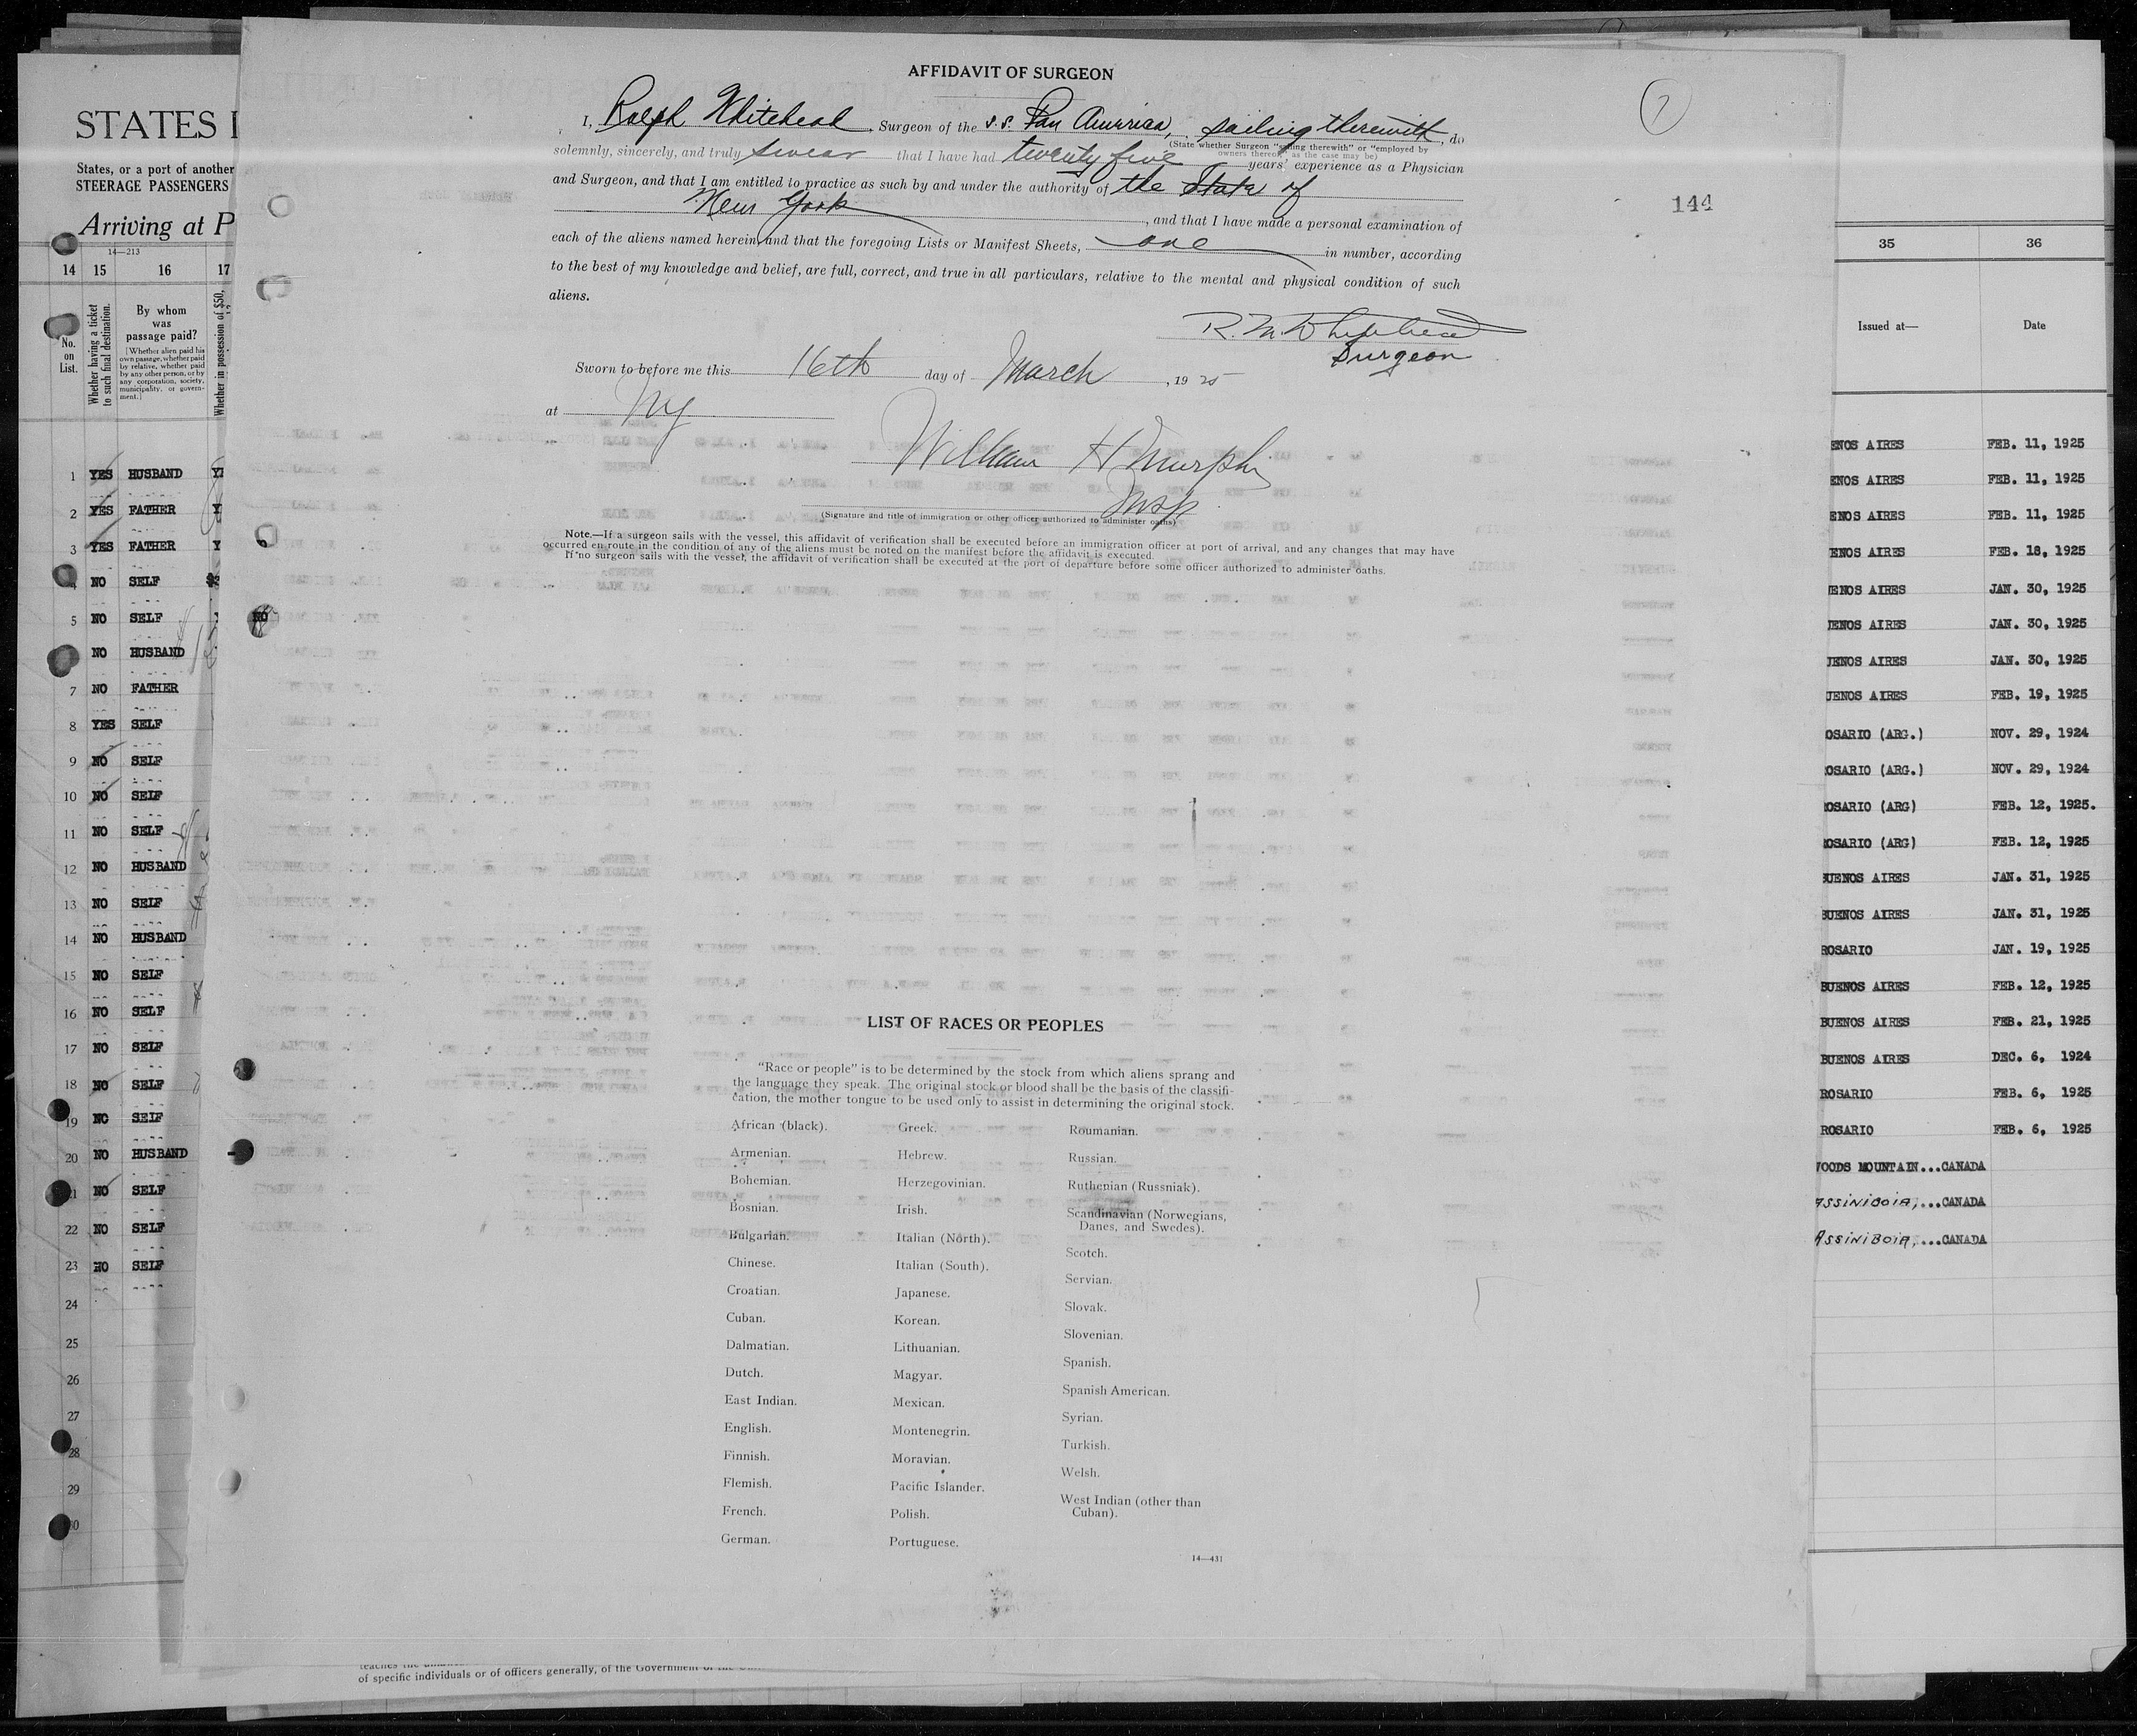 AFFIDAVIT OF SURGEON
I, Ralph Whitehead, Surgeon of the S.S. Pan America, sailing therewith, do
(State whether Surgeon "sailing therewith" or "employed by
owners thereof," as the case may be)
solemnly, sincerely, and truly swear that I have had twenty five years' experience as a Physician
and Surgeon, and that I am entitled to practice as such by and under the authority of the State of
New York, and that I have made a personal examination of
each of the aliens named herein and that the foregoing Lists or Manifest Sheets, one in number, according
to the best of my knowledge and belief, are full, correct, and true in all particulars, relative to the mental and physical condition of such
aliens.
R. M. Whitehead
Surgeon
Sworn to before me this 16th day of March, 1925
at NY
William H Murphy
Insp
(Signature and title of immigration or other officer authorized to administer oaths)
Note.—If a surgeon sails with the vessel, this affidavit of verification shall be executed before an immigration officer at port of arrival, and any changes that may have
occurred en route in the condition of any of the aliens must be noted on the manifest before the affidavit is executed.
If no surgeon sails with the vessel, the affidavit of verification shall be executed at the port of departure before some officer authorized to administer oaths.
144
LIST OF RACES OR PEOPLES
"Race or people" is to be determined by the stock from which aliens sprang and
the language they speak. The original stock or blood shall be the basis of the classifi-
cation, the mother tongue to be used only to assist in determining the original stock.
African (black).
Armenian.
Bohemian.
Bosnian.
Bulgarian.
Chinese.
Croatian.
Cuban.
Dalmatian.
Dutch.
East Indian.
English.
Finnish.
Flemish.
French.
German.
Greek.
Hebrew.
Herzegovinian.
Irish.
Italian (North).
Italian (South).
Japanese.
Korean.
Lithuanian.
Magyar.
Mexican.
Montenegrin.
Moravian.
Pacific Islander.
Polish.
Portuguese.
Roumanian.
Russian.
Ruthenian (Russniak).
Scandinavian (Norwegians,
Danes, and Swedes).
Scotch.
Servian.
Slovak.
Slovenian.
Spanish.
Spanish American.
Syrian.
Turkish.
Welsh.
West Indian (other than
Cuban).
14—431
of specific individuals or of officers generally, of the Government
STATES
States, or a port of another
STEERAGE PASSENGERS
Arriving at P
14—213
14 15 16 17
No.
on
List.
Whether having a ticket
to such final destination.
By whom
was
passage paid?
(Whether alien paid his
own passage, whether paid
by relative, whether paid
by any other person, or by
any corporation, society,
municipality, or govern-
ment.)
Whether in possession of $50,
1 YES HUSBAND
2 YES FATHER
3 YES FATHER
4 NO SELF
5 NO SELF
NO HUSBAND
7 NO FATHER
8 YES SELF
9 NO SELF
10 NO SELF
11 NO SELF
12 NO HUSBAND
13 NO SELF
14 NO HUSBAND
15 NO SELF
16 NO SELF
17 NO SELF
18 NO SELF
19 NO SELF
20 NO HUSBAND
21 NO SELF
22 NO SELF
23 NO SELF
24
25
26
27
28
29
30
35 36
Issued at— Date
ENOS AIRES FEB. 11, 1925
ENOS AIRES FEB. 11, 1925
ENOS AIRES FEB. 11, 1925
ENOS AIRES FEB. 18, 1925
UENOS AIRES JAN. 30, 1925
UENOS AIRES JAN. 30, 1925
UENOS AIRES JAN. 30, 1925
UENOS AIRES FEB. 19, 1925
OSARIO (ARG.) NOV. 29, 1924
OSARIO (ARG.) NOV. 29, 1924
ROSARIO (ARG) FEB. 12, 1925.
ROSARIO (ARG) FEB. 12, 1925
BUENOS AIRES JAN. 31, 1925
BUENOS AIRES JAN. 31, 1925
ROSARIO JAN. 19, 1925
BUENOS AIRES FEB. 12, 1925
BUENOS AIRES FEB. 21, 1925
BUENOS AIRES DEC. 6, 1924
ROSARIO FEB. 6, 1925
ROSARIO FEB. 6, 1925
WOODS MOUNTAIN...CANADA
ASSINIBOIA,...CANADA
ASSINIBOIA,...CANADA